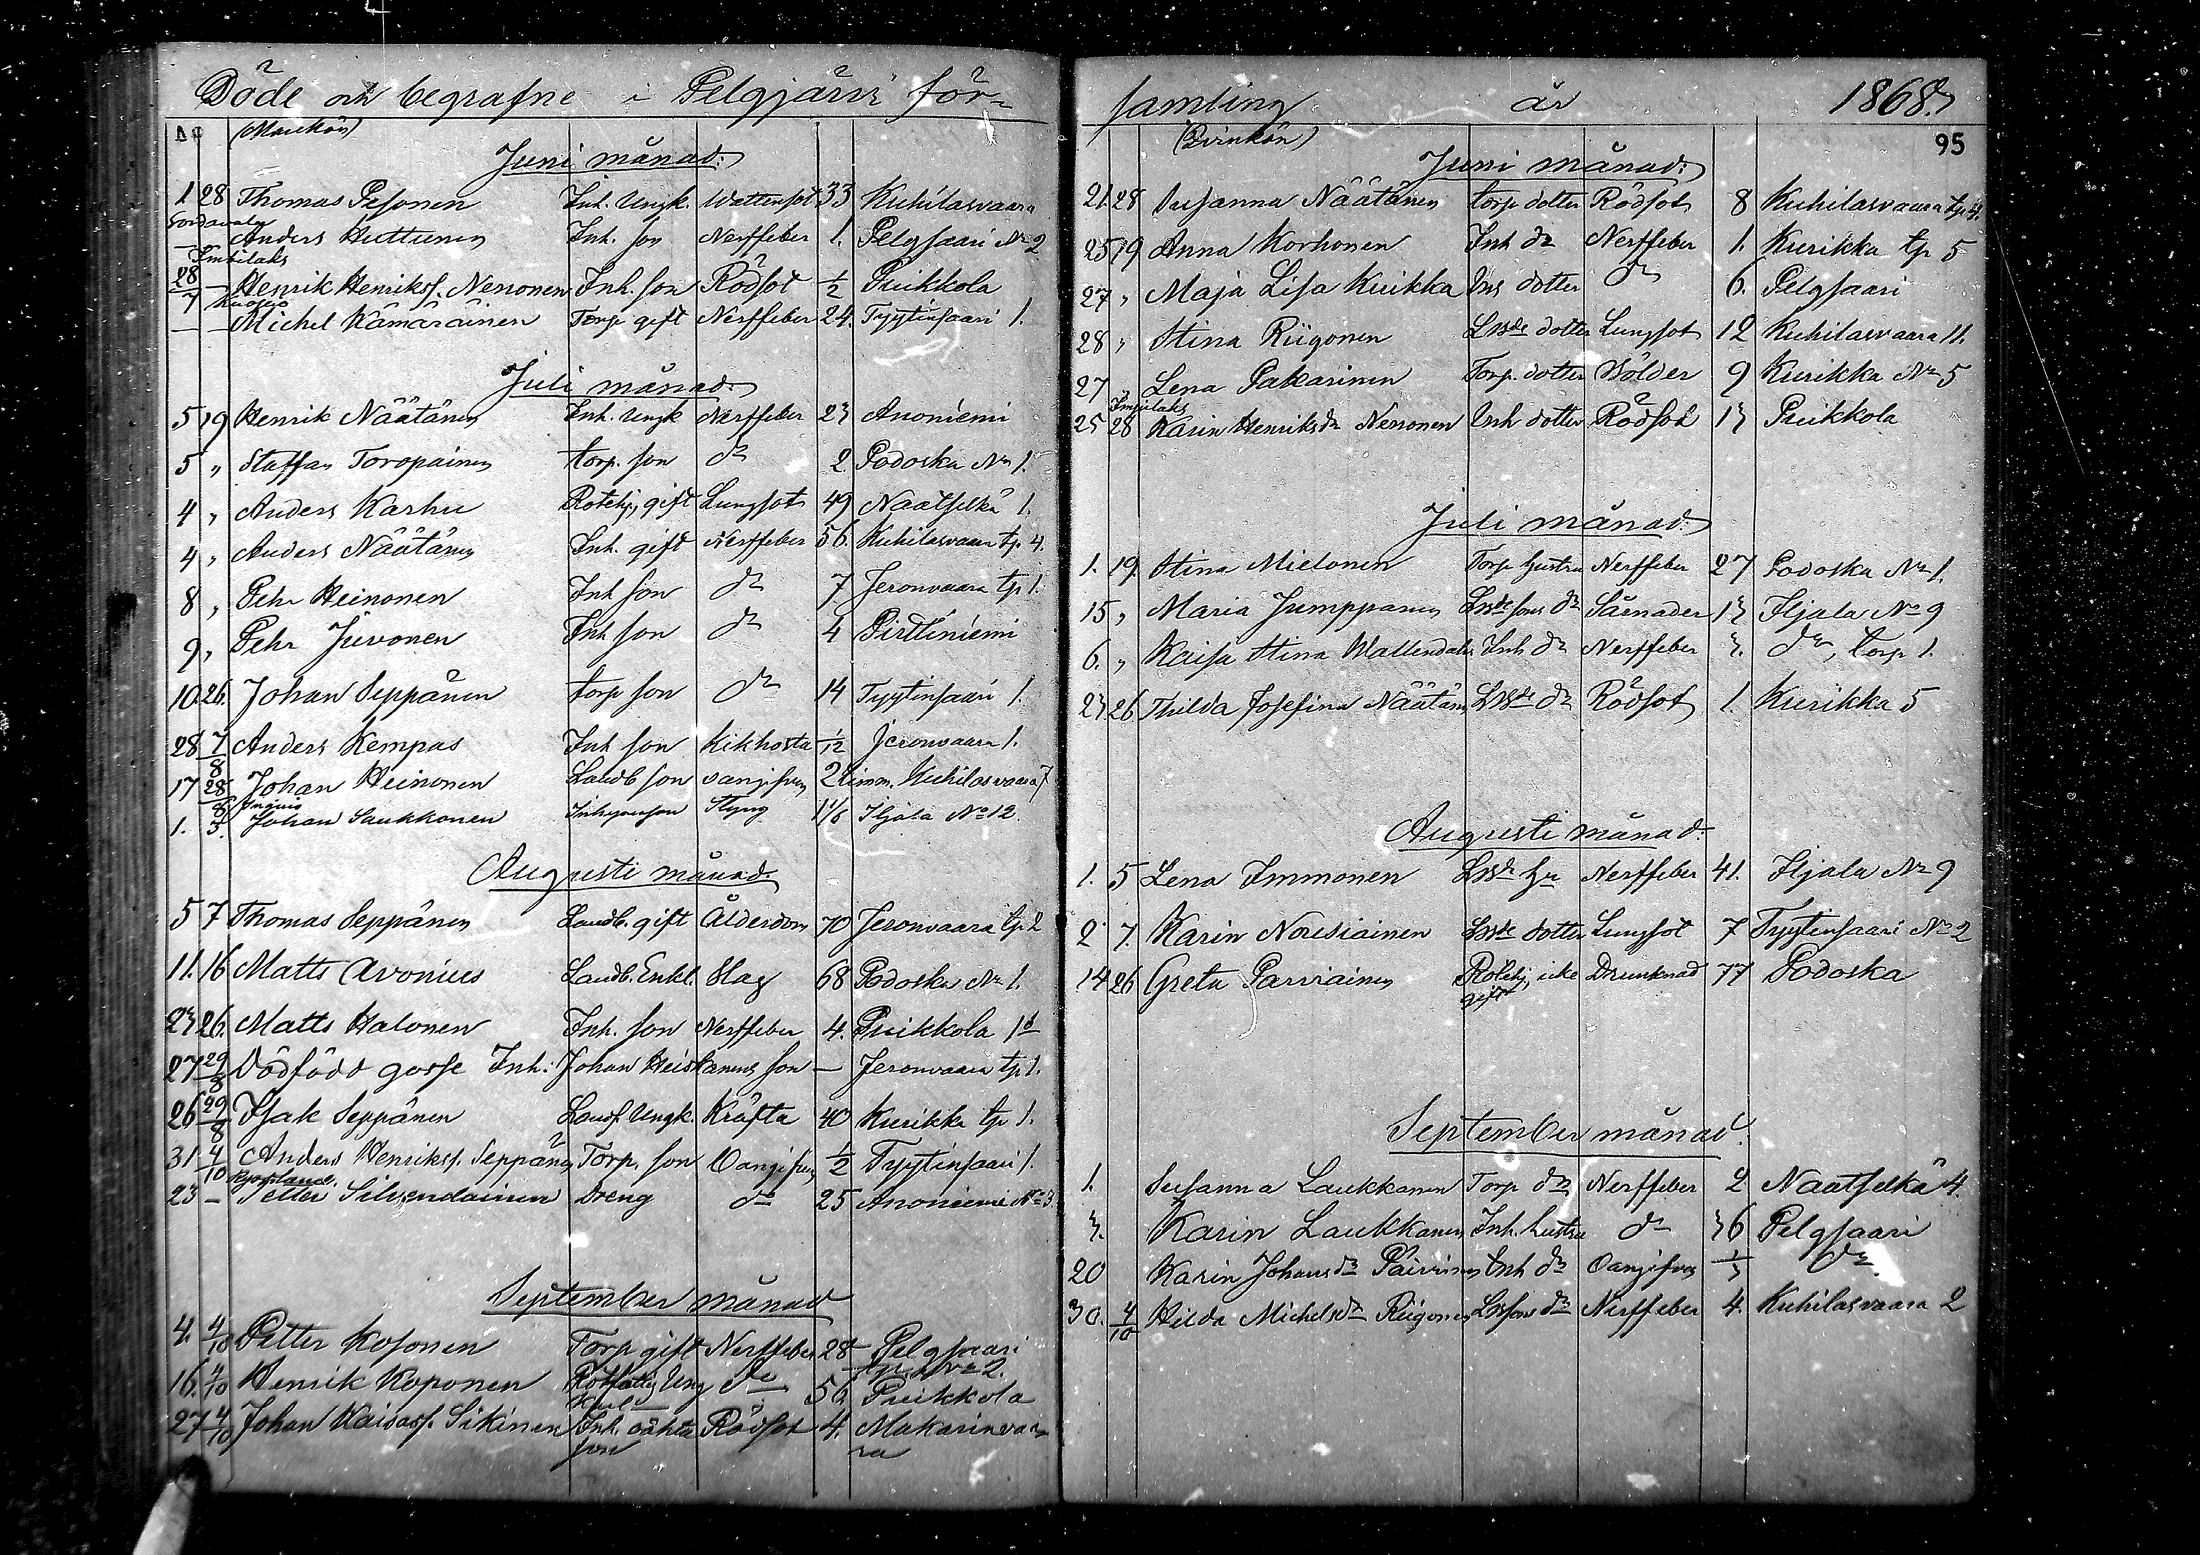 Döde och begrafne i Pelgjärvi för-
(Mankön)
Juni månad:
1 28 Thomas Pesonen Inh. Ungk. Wattensot 33 Kuhilasvaara
Sordavala
— Anders Huttunen Inh. son Nerffeber 1. Pelgjaari No 2
Imbilaks
28/7 — Henrik Henriks. Nenonen Inh. son Rödsot 1/2 Puikkola
Kuopio
— — Michel Kämäräinen Torp gift Nerffeber 24. Tyytinsaari 1.
Juli månad:
5 19 Henrik Näätänen Inh. Ungk Nerffeber 23 Anoniemi
5 " Staffan Toropainen torp. son do 2 Podoska No 1.
4 " Anders Karhu Rotehj. gift Lungsot 49 Naatselkä 1.
4 " Anders Näätänen Inh. gift Nerffeber 56. Kuhilasvaara tp. 4.
8 " Pehr Heinonen Inh son do 7 Jeronvaara tp 1.
9 " Pehr Juvonen Inh son do 4 Pirttiniemi
10 26. Johan Seppänen torp son do 14 Tyytinsaari 1.
28 7/8 Anders Kempas Inh son Kikhosta 1/12 Jeronvaara 1.
17 28/8 Johan Heinonen Landb son oangifven 2 timm. Kuhilasvaara 7
1. 3. Johan Saukkonen Styng 1 1/6 Iljala No 12
Augusti månad.
5 7 Thomas Seppänen Landb. gift Ålderdom 70 Jeronvaara tp 2
11. 16 Matts Avonius Landb. Enkl. Slag 68 Podoska No 1.
23 26. Matts Halonen Inh. son Nerffeber 4. Puikkola
27 29/8 Dödfödd gosse Inh. Johan Heiskanens son — Jeronvaara tp 1.
26 29/8 Isak Seppänen Ungk. Kräfta 40 Kurikka tp 1.
31 4/10 Anders Henriks. Seppänen Torp. son Oangifven 1/2 Tyytinsaari 1.
23 — Petter Silvendoinen Dreng do 25 Anoniemi No 3.
September månad
4. 4/10 Petter Kosonen Torp gift Nerffeber 28 Pelgjaari
tp No 2.
16. 4/10 Henrik Koponen Rotfattig Ung do 56 Puikkola
Karl
27 4/10 Johan Kaisas. Sikinen Inh. oäkta Rödsot 4. Makarinvaa-
son ra
samling år 1868.
(Qvinkön) 95
Juni månad:
21. 28 Susanna Näätänen torp dotter Rödsot 8 Kuhilasvaara tp 4.
25 19 Anna Korhonen Inh dr Nerffeber 1. Kurikka tp 5
27 " Maja Lisa Kuikka Inh dotter do 6. Pelgjaari
28 " Stina Riigonen dotter Lungsot 12 Kuhilasvaara 11.
27 " Lena Pakarinen Torp. dotter Bölder 9 Kurikka No 5
Imbilaks
25 28 Karin Henriksdr Nenonen Inh dotter Rödsot 13 Puikkola
Juli månad:
1. 19. Stina Mielonen Torp hustru Nerffeber 27 Podoska No 1.
15 " Maria Jumppanen sons dr Sårnader 13 Iljala No 9
6. " Kaisa Stina Wallendahr Inh dr Nerffeber 3. do, torp 1.
23 26 Thilda Josefina Näätänen dr Rödsot 1. Kurikka 5
Augusti månad.
1. 5 Lena Immonen hu Nerffeber 41. Iljala No 9
2 7. Karin Nousiainen dotter Lungsot 7 Tyytinsaari No 2
14 26 Greta Parviainen Rotehj. icke Drunknad 77 Podoska
gift
September månad.
1. Susanna Laukkanen Torp dr Nerffeber 2 Naatselkä 4.
3. Karin Laukkanen Inh. hustru do 36 Pelgjaari
20 Karin Johansdr Päivinen Inh dr Oangifven 1/3 do
30. 4/10 Hilda Michelsdr Riigonen sons dr Nerffeber 4. Kuhilasvaara 2